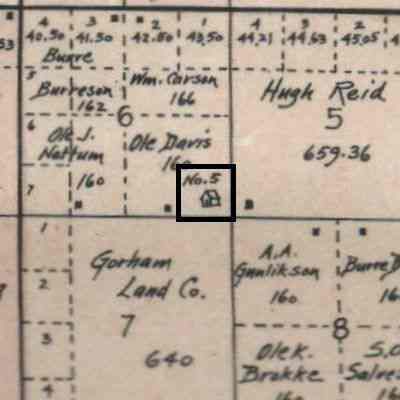 4 3 2 1 4 3 2
53 40.50 41.50 42.50 43.50 44.21 44.63 45.05 4
Burre
5 Burreson Wm. Carson Hugh Reid
162 166
6 5
6 Ole J. Ole Davis 659.36
Nottum 160
7 160 No. 5
1
Gorham A.A.
Land Co. Gunlikson Burre D
2 160 16
7 8
3 640 Ole K. S.O.
Brakke Salves
4 160 16